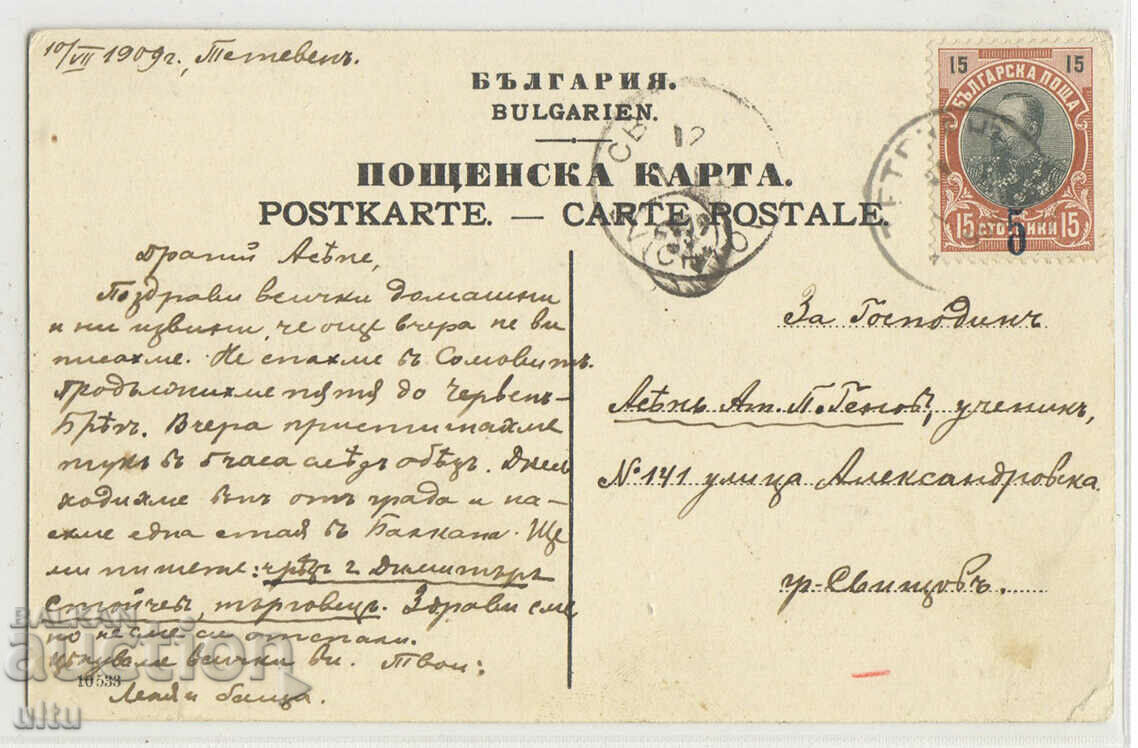 10/VII 1909 г., Тетевенъ.
БЪЛГАРИЯ.
BULGARIEN.
ПОЩЕНСКА КАРТА.
POSTKARTE. — CARTE POSTALE.
15 15
БЪЛГАРСКА ПОЩА
15 СТОТИНКИ 15
5
Драгий Асѣне,
Поздрави всички домашни
и ни извини, че още вчера не ви
писахме. Не спахме в Сомовитъ.
продължихме пѫтя до Червенъ-
Брѣгъ. Вчера пристигнахме
тукъ в 5 часа слѣдъ обѣдъ. Днес
ходихме вънъ отъ града и на-
ехме една стая в Балкана. Ще
ми пишете: чрѣзъ г. Димитъръ
Стойчев, търговецъ. Здрави сме
но не сме си отспали.
Цѣлувам всички ви. Твои:
и баща.
10533
За Господинъ
Асѣнъ Ат. П. Генов, ученикъ,
№ 141 улица Александровска
гр. Свищовъ.
BALKAN
auction
ultu